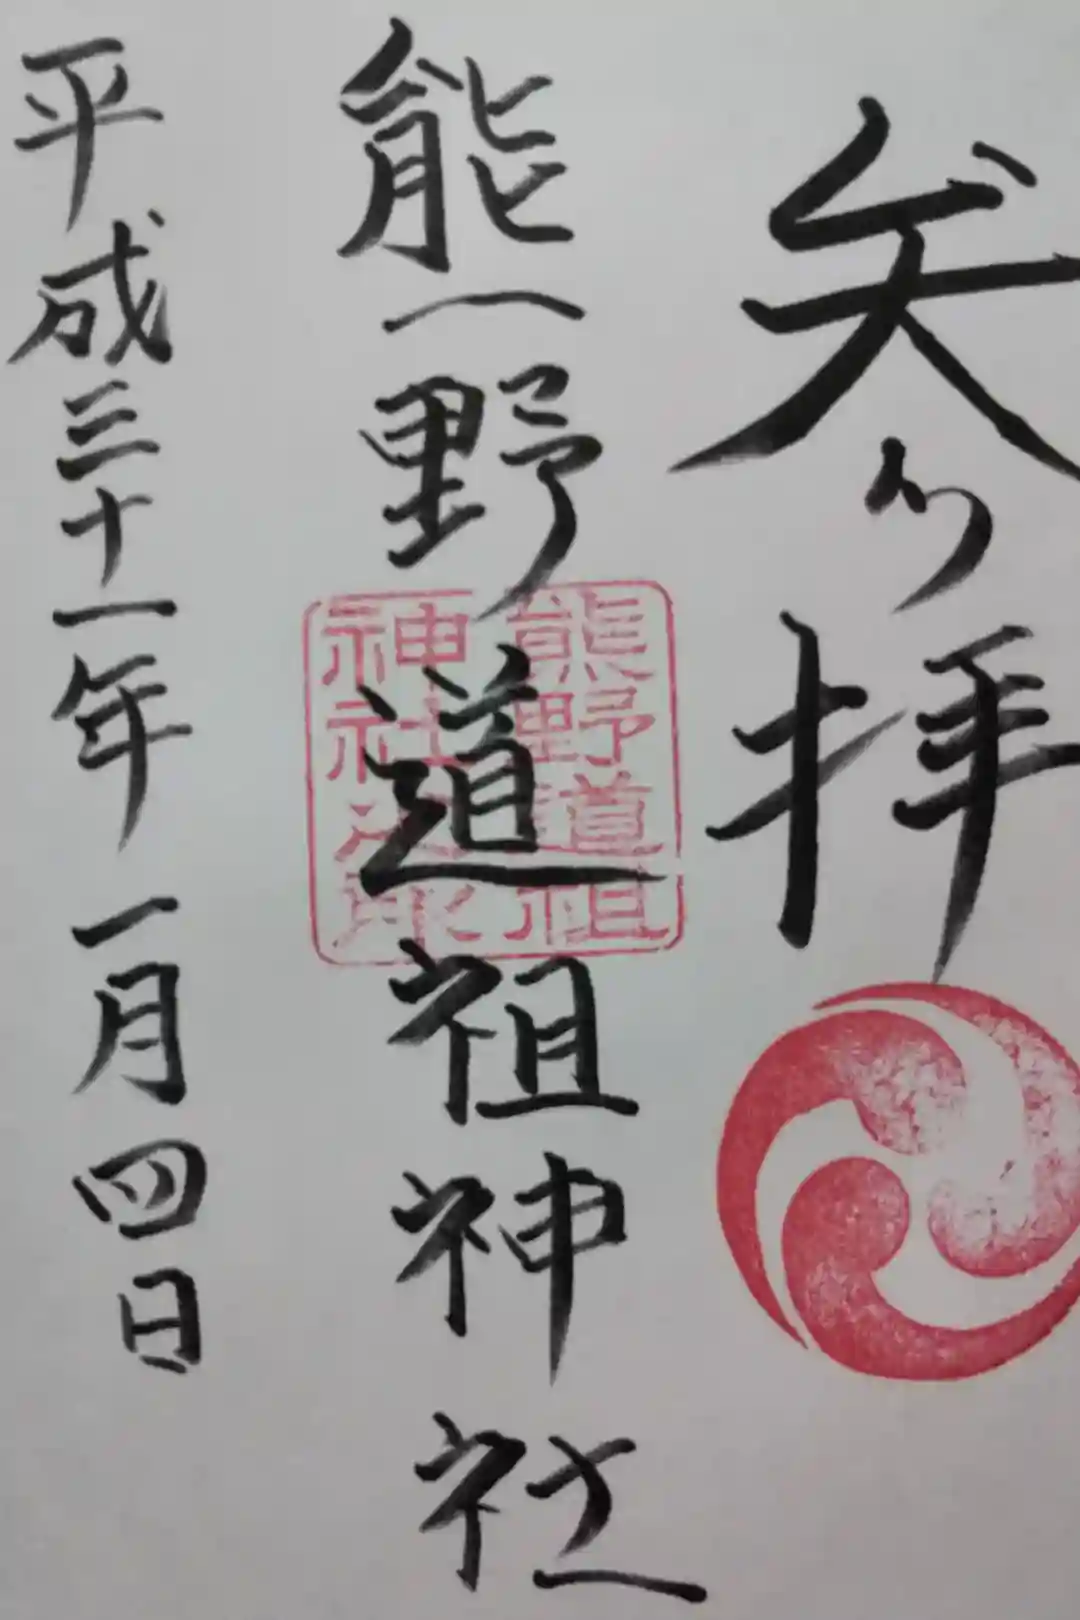 参拝
熊野道祖神社
熊野道祖
神社之印
平成三十一年一月四日